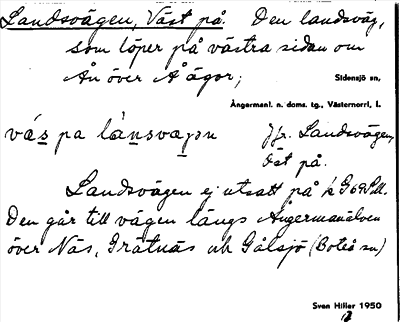 Landsvägen, Väst på. Den landsväg,
som löper på västra sidan om
Ån över Å ägor;
Sidensjö sn,
Ångermanl. n. doms. tg., Västernorrl. l.
vás pa lànsvagən
Jfr. Landsvägen,
Öst på.
Landsvägen ej utsatt på
Den går till vägen längs Ångermanälven
över Näs, Grätnäs och Gålsjö (Boteå sn)
Sven Hiller 1950